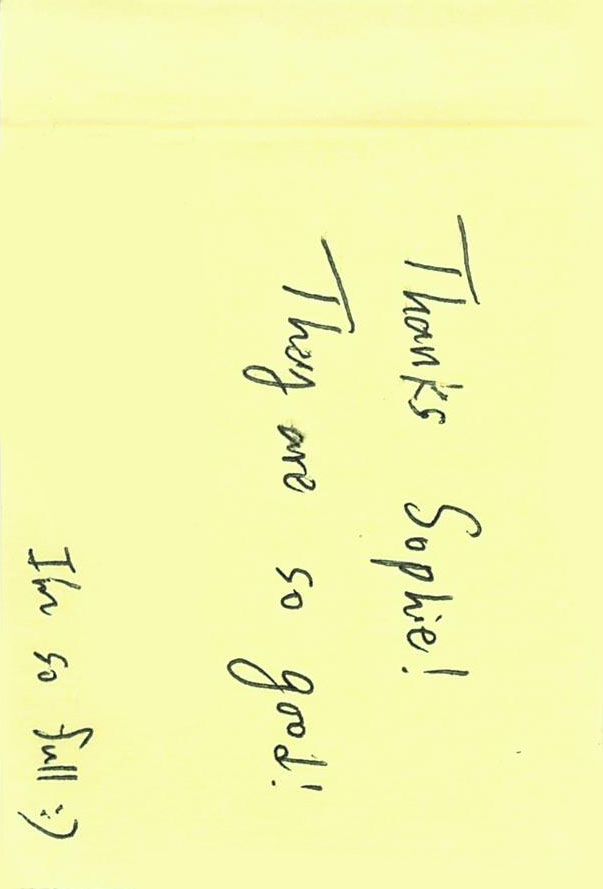 Thanks Sophie!
They are so good!
I'm so full :)